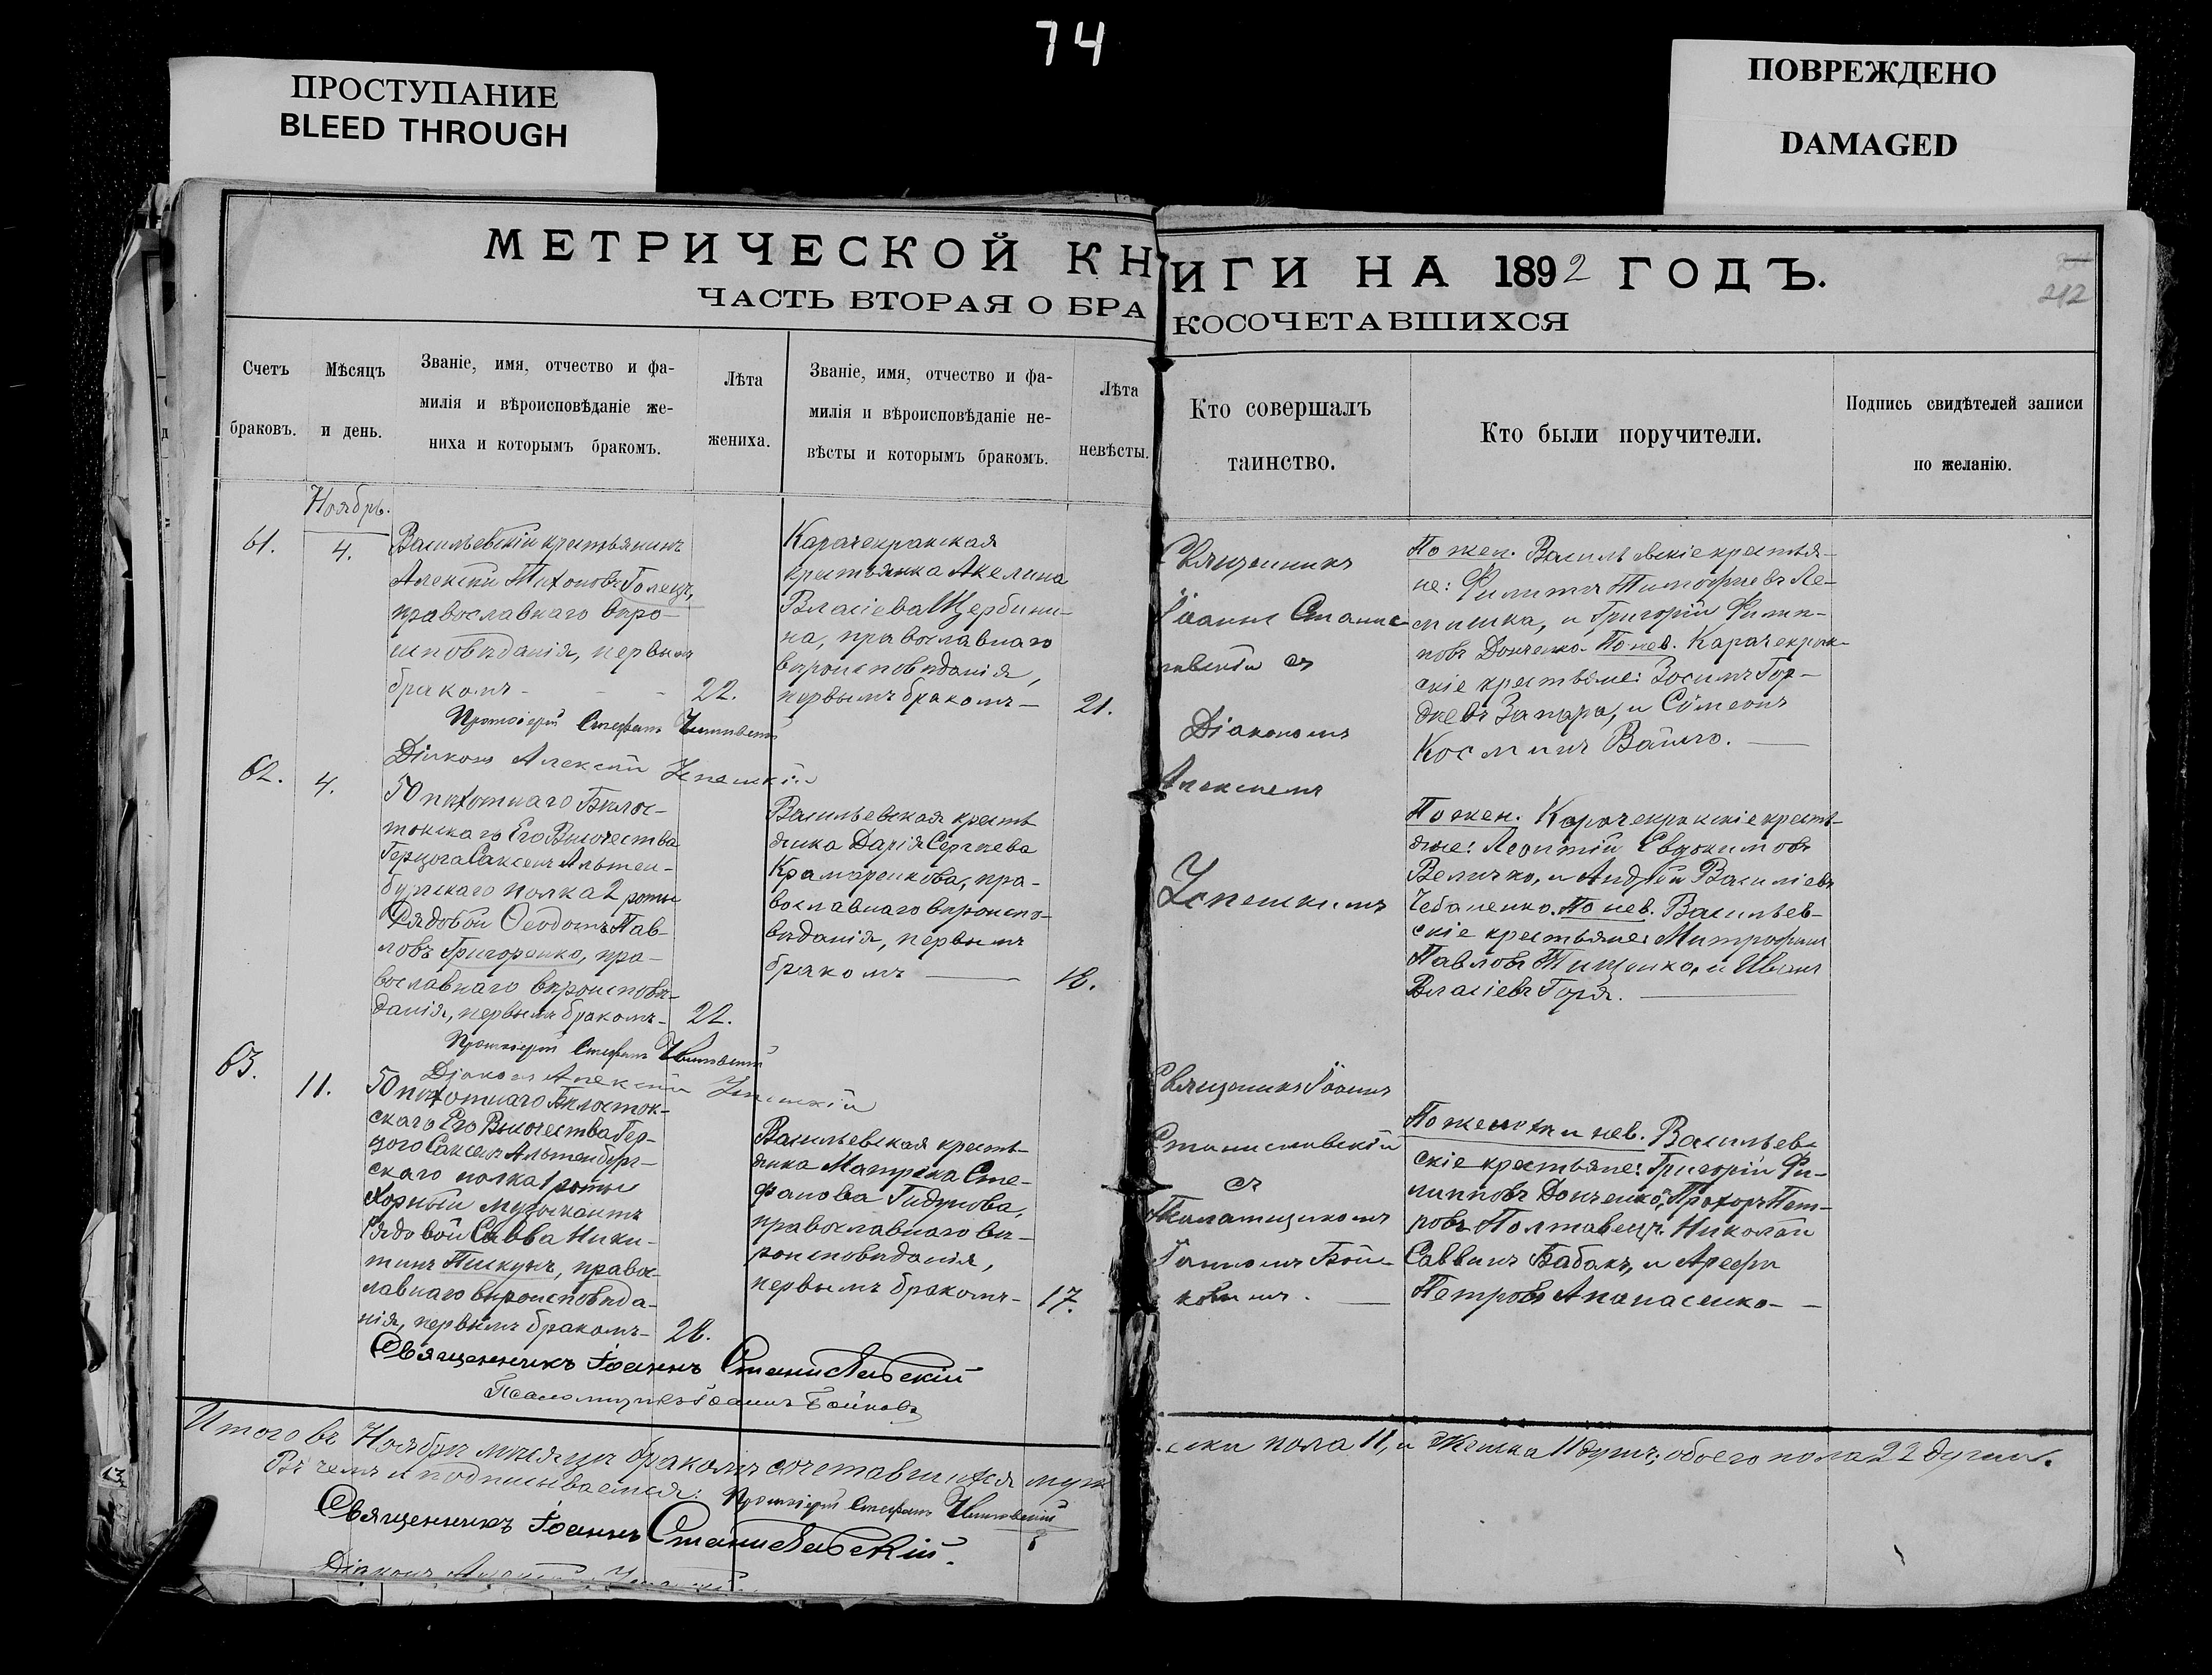 74
ПРОСТУПАНИЕ
BLEED THROUGH
ПОВРЕЖДЕНО
DAMAGED
МЕТРИЧЕСКОЙ КНИГИ НА 1892 ГОДЪ.
ЧАСТЬ ВТОРАЯ О БРАКОСОЧЕТАВШИХСЯ
212
Счетъ
браковъ.
Мѣсяцъ
и день.
Званіе, имя, отчество и фа-
милія и вѣроисповѣданіе же-
ниха и которымъ бракомъ.
Лѣта
жениха.
Званіе, имя, отчество и фа-
милія и вѣроисповѣданіе не-
вѣсты и которымъ бракомъ.
Лѣта
невѣсты.
Кто совершалъ
таинство.
Кто были поручители.
Подпись свидѣтелей записи
по желанію.
Ноябрь.
61.
4.
Васильевскій крестьянинъ
Алексѣй Тихоновъ Голецъ,
православнаго вѣро-
исповѣданія, первымъ
бракомъ -
22.
Карачекракская
крестьянка Акелина
Власіева Щербини-
на, православнаго
вѣроисповѣданія,
первымъ бракомъ —
21.
Священникъ
Іоаннъ Станис-
лавскій съ
Діакономъ
Алексіемъ
По жен. Васильевскіе крестья-
не: Филиппъ Тимофѣевъ Ле-
мишка, и Григорій Филип-
повъ Донченко. По нев. Карачекрак-
скіе крестьяне: Зосимъ Гор-
дѣевъ Запара, и Сѵмеонъ
Косминъ Вайло. —
Протоіерей Стефанъ
Діаконъ Алексій
62.
4.
50 пѣхотнаго Бѣлос-
токскаго Его Высочества
Герцога Саксенъ Альтен-
бургскаго полка 2 роты
Рядовой Ѳеодотъ Пав-
ловъ Григоренко, пра-
вославнаго вѣроисповѣ-
данія, первымъ бракомъ-
22.
Васильевская кресть-
янка Дарія Сергѣева
Крамаренкова, пра-
вославнаго вѣроиспо-
вѣданія, первымъ
бракомъ —
18.
По жен. Карачекракскіе кресть-
яне: Леонтій Евдокимовъ
Величко, и Андрей Василіевъ
Чебаненко. По нев. Васильев-
скіе крестьяне: Митрофанъ
Павловъ Тищенко, и Иванъ
Власіевъ Горя. —
Протоіерей Стефанъ
Діаконъ Алексій
63.
11.
50 пѣхотнаго Бѣлосток-
скаго Его Высочества Гер-
цога Саксенъ Альтенбург-
скаго полка 1 роты
Хорный музыкантъ
Рядовой Савва Ники-
тинъ Пискунъ, право-
славнаго вѣроисповѣда-
нія, первымъ бракомъ-
28.
Васильевская кресть-
янка Матрона Сте-
фанова Гидунова,
православнаго вѣ-
роисповѣданія,
первымъ бракомъ-
17.
Священникъ Іоаннъ
Станиславскій
съ
Псаломщикомъ
Іоанномъ Бой-
ковымъ. —
По жених и нев. Васильев-
скіе крестьяне: Григорій Фи-
липповъ Донченко, Прохоръ Пет-
ровъ Полтавецъ, Николай
Саввинъ Бабакъ, и Арефа
Петровъ Апанасенко- —
Священникъ Іоаннъ Станиславскій
Псаломщикъ Іоаннъ Бойковъ
Итого въ Ноябрѣ мѣсяцѣ бракомъ сочетавшихся мужеска пола 11, и женска 11 душъ; обоего пола 22 души.
Въ чемъ и подписываемся: Протоіерей Стефанъ
Священникъ Іоаннъ Станиславскій.
Діаконъ